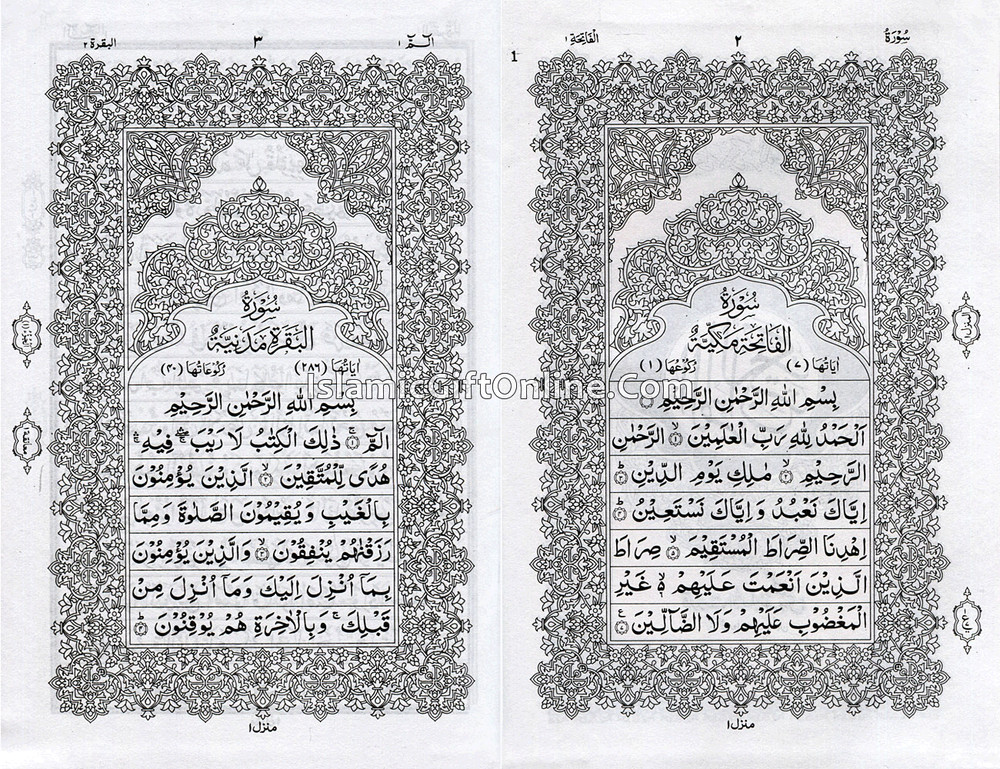 سُوْرَةُ ٢ الفَاتِحَة ١
1
سُوْرَةُ
الْفَاتِحَةِ مَكِّيَّةٌ
اٰيَاتُهَا (٧) رُكُوْعُهَا (١)
بِسْمِ اللهِ الرَّحْمٰنِ الرَّحِيْمِ
اَلْحَمْدُ لِلّٰهِ رَبِّ الْعٰلَمِيْنَ ۙ﴿١﴾ الرَّحْمٰنِ
الرَّحِيْمِ ۙ﴿٢﴾ مٰلِكِ يَوْمِ الدِّيْنِ ؕ﴿٣﴾
اِيَّاكَ نَعْبُدُ وَ اِيَّاكَ نَسْتَعِيْنُ ؕ﴿٤﴾
اِهْدِنَا الصِّرَاطَ الْمُسْتَقِيْمَ ۙ﴿٥﴾ صِرَاطَ
الَّذِيْنَ اَنْعَمْتَ عَلَيْهِمْ ۙ۬ غَيْرِ
الْمَغْضُوْبِ عَلَيْهِمْ وَلَا الضَّآلِّيْنَ
منزل ١
الٓمّٓ ١ ٣ البقرة ٢
سُوْرَةُ
الْبَقَرَةِ مَدَنِيَّةٌ
اٰيَاتُهَا (٢٨٦) رُكُوْعَاتُهَا (٤٠)
بِسْمِ اللهِ الرَّحْمٰنِ الرَّحِيْمِ
الٓمّٓ ۚ﴿١﴾ ذٰلِكَ الْكِتٰبُ لَا رَيْبَ ۛۖۚ فِيْهِ ۛۚ
هُدًى لِّلْمُتَّقِيْنَ ۙ﴿٢﴾ الَّذِيْنَ يُؤْمِنُوْنَ
بِالْغَيْبِ وَ يُقِيْمُوْنَ الصَّلٰوةَ وَ مِمَّا
رَزَقْنٰهُمْ يُنْفِقُوْنَ ۙ﴿٣﴾ وَالَّذِيْنَ يُؤْمِنُوْنَ
بِمَآ اُنْزِلَ اِلَيْكَ وَمَآ اُنْزِلَ مِنْ
قَبْلِكَ ۚ وَ بِالْاٰخِرَةِ هُمْ يُوْقِنُوْنَ ؕ﴿٤﴾
منزل ١
IslamicGiftOnline.Com